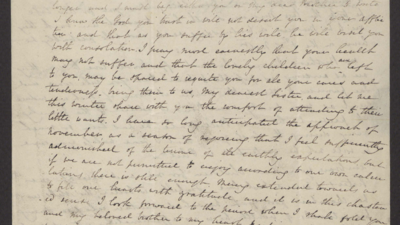 longer and I must
I know the God you trust in will not desert you in your afflic
tion and that as you suffer by his will he will grant you
with consolation I pray most earnestly that your health
may not suffer and that the lovely children who are left
to you, may be spared to requite you for all your cares and
tenderness, bring them to us, my dearest sister and let me
this winter share with you the comfort of attending to their
little wants. I have so long anticipated the approach of
november, as a season of rejoicing that I feel sufficiently
admonished of the of the earthly expectations, but
if we are not permitted to enjoy according to our own calcu
lations, there is still enough mercy extended towards us
to fill our hearts with gratitude and it is in this chasten
ed sense I look forward to the period when I shall fold you
and my beloved brother to my heart